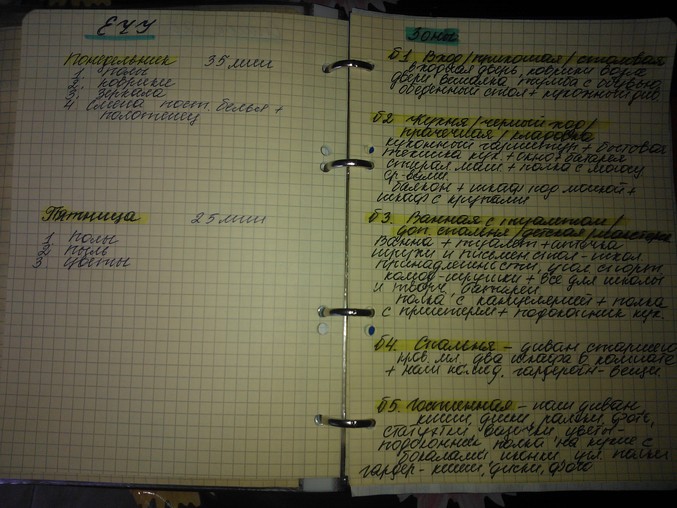 ЕЧУ
Понедельник 35 мин
1. полы
2. коврики
3. зеркала
4. Смена пост. белья +
полотенец
Пятница 25 мин
1. полы
2. пыль
3. цветы
Зоны
Б1. Вход/прихожая/столовая
входная дверь, коврики возле
двери, вешалка, тумба с обувью
обеденный стол + кухонный див.
Б2. Кухня/черный ход/
прачечная/кладовка
кухонный гарнитур + бытовая
техника кух. + окно + батарея
стирал. маш + полка с моющ
ср-вами
балкон + шкаф под мойкой +
шкаф с крупами
Б3. Ванная с туалетом/
доп. спальня/детская/мастерск
Ванна + туалет + аптечка
игрушки и письмен стол - школ
принадлежности, угол спорт.
комод-игрушки + все для школы
и творч, батарея
полка с канцелярией + полка
с принтером + подоконник кух.
Б4. Спальня - диван старшего
кров. мл. два шкафа в комнате
+ наш комод, гардероб - вещи.
Б5. Гостинная - наш диван
книги, диски, рамки, фото,
статуэтки, цветы -
подоконник полка на кухне с
бокалами иконки, полки
гардер - книги, диски, фото